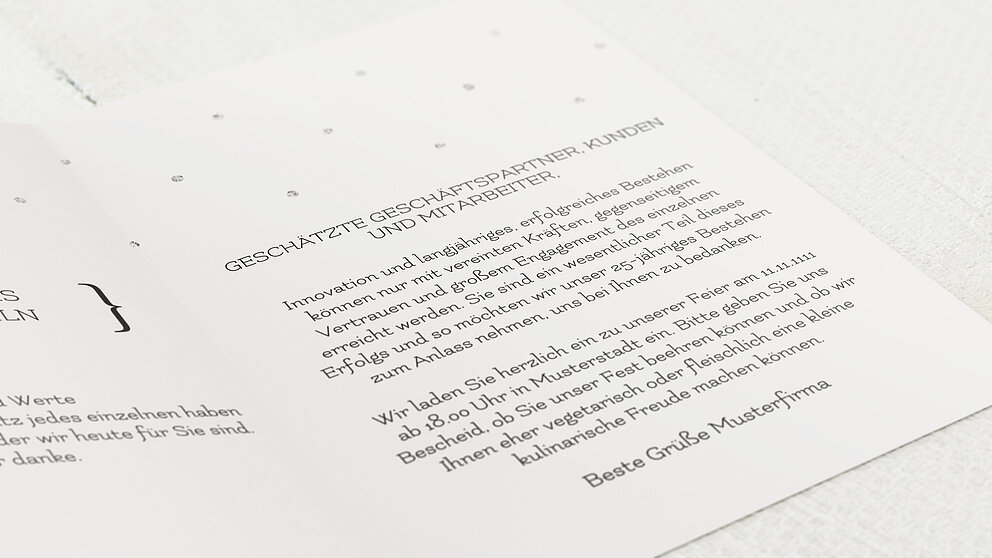 LN
}
d Werte
tz jedes einzelnen haben
der wir heute für Sie sind.
r danke.
GESCHÄTZTE GESCHÄFTSPARTNER, KUNDEN
UND MITARBEITER,
Innovation und langjähriges, erfolgreiches Bestehen
können nur mit vereinten Kräften, gegenseitigem
Vertrauen und großem Engagement des einzelnen
erreicht werden. Sie sind ein wesentlicher Teil dieses
Erfolgs und so möchten wir unser 25-jähriges Bestehen
zum Anlass nehmen, uns bei Ihnen zu bedanken.
Wir laden Sie herzlich ein zu unserer Feier am 11.11.1111
ab 18.00 Uhr in Musterstadt ein. Bitte geben Sie uns
Bescheid, ob Sie unser Fest beehren können und ob wir
Ihnen eher vegetarisch oder fleischlich eine kleine
kulinarische Freude machen können.
Beste Grüße Musterfirma